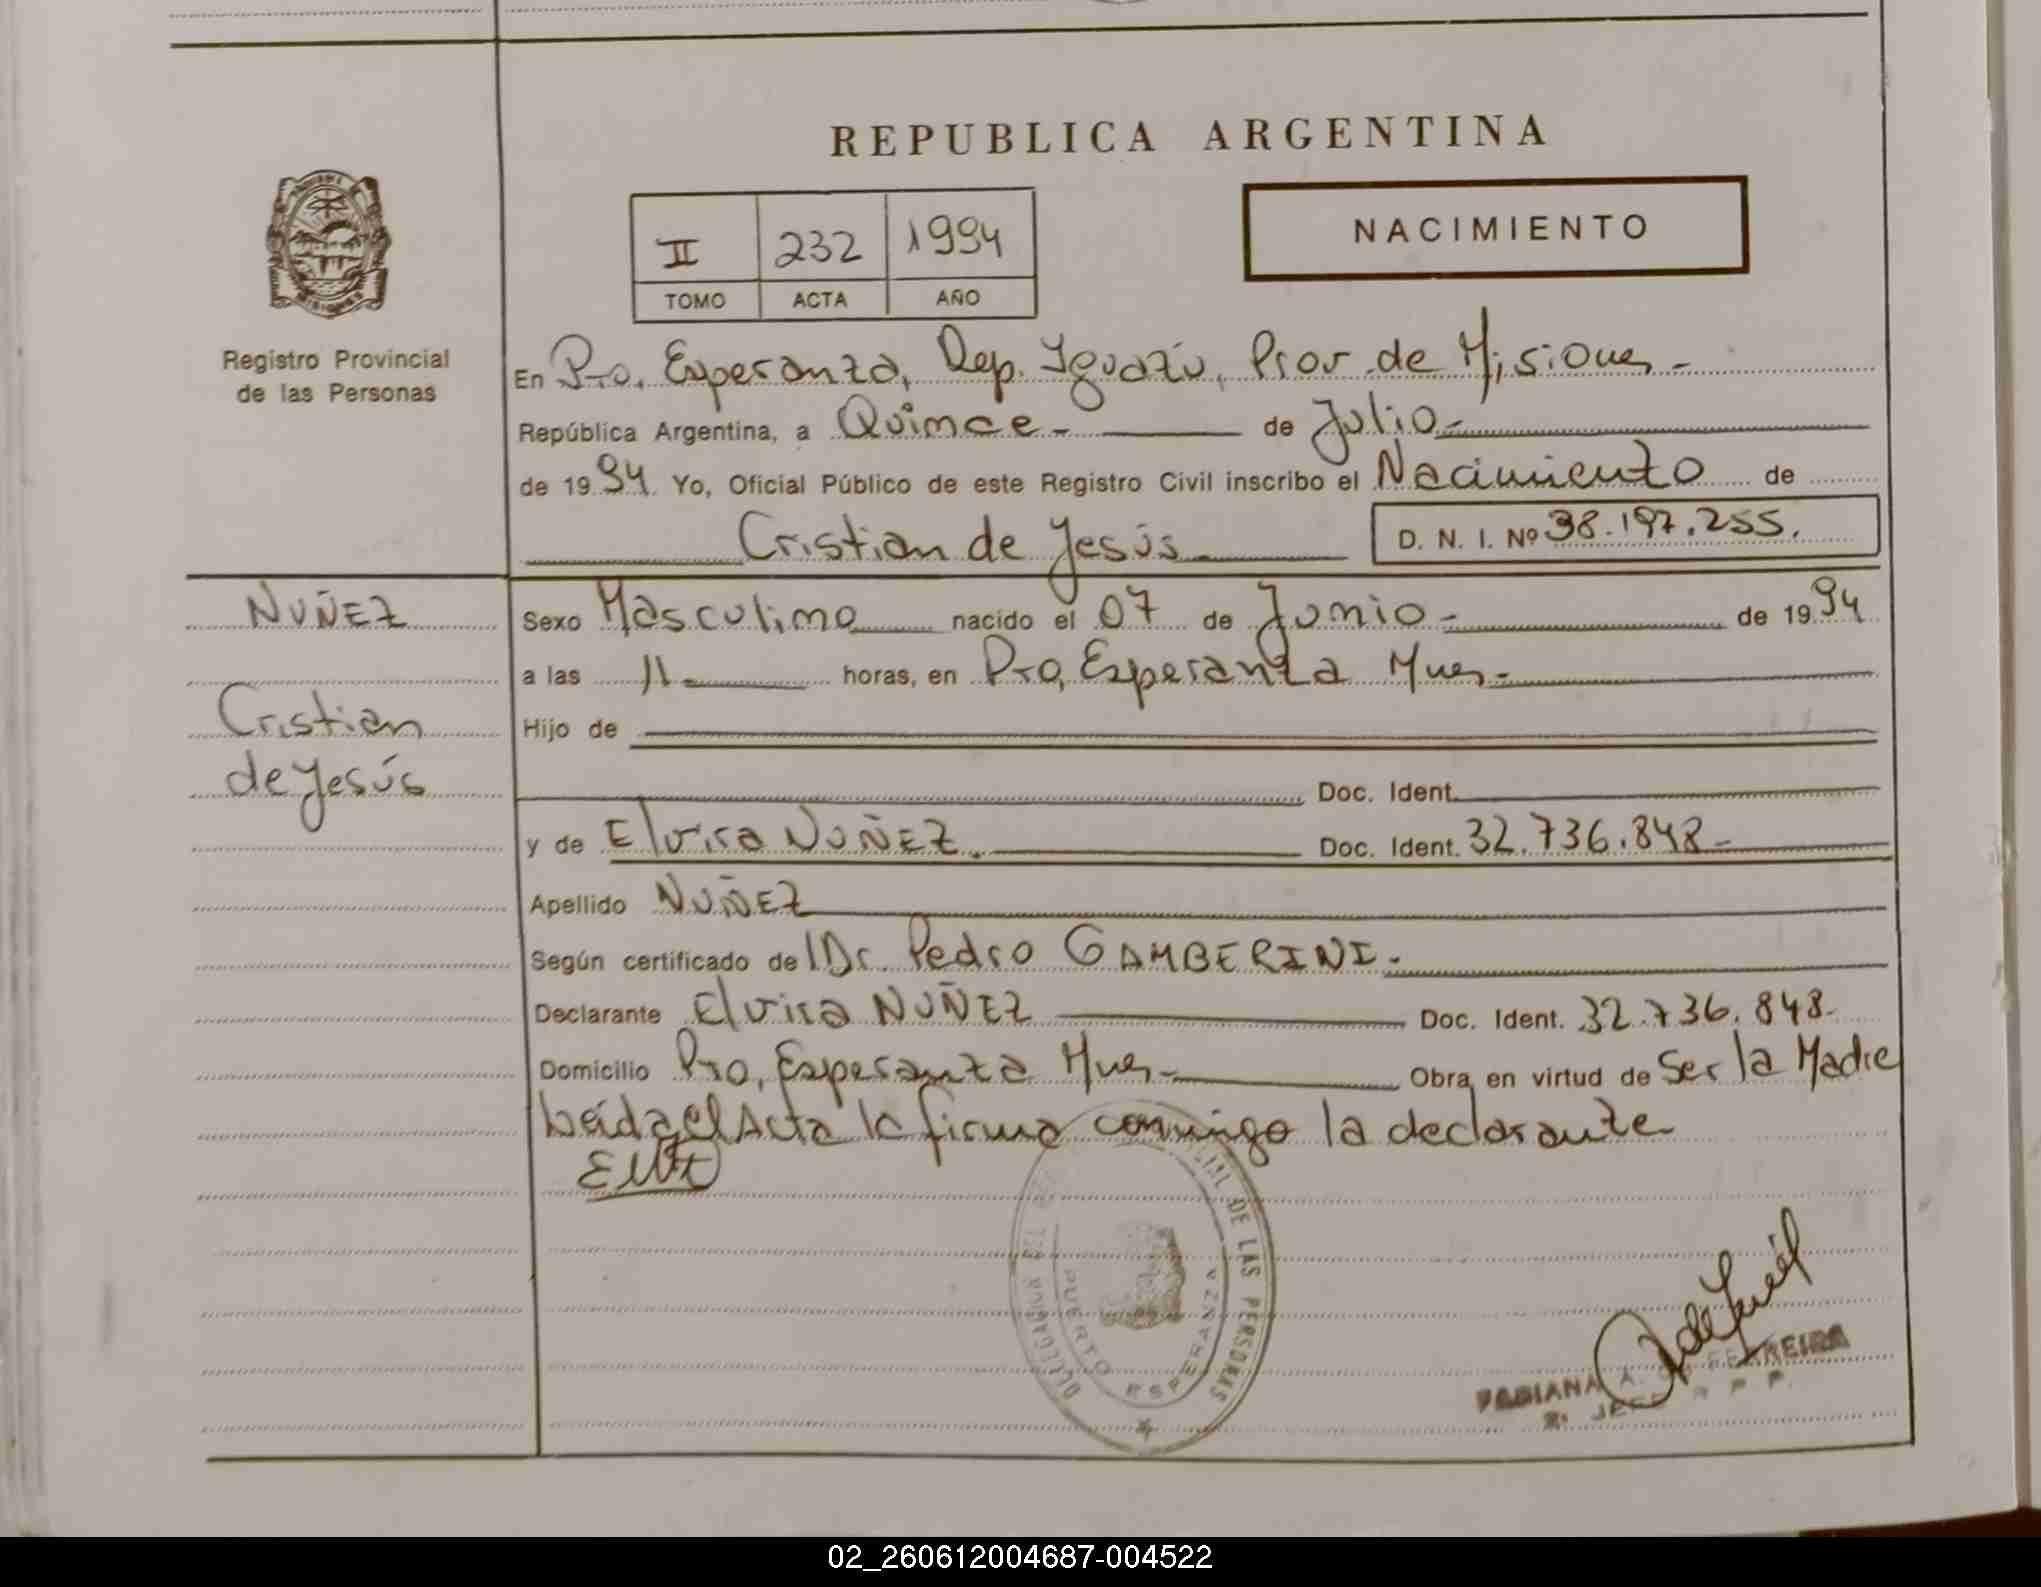 REPUBLICA ARGENTINA
II 232 1994
TOMO ACTA AÑO
NACIMIENTO
Registro Provincial
de las Personas
En Pto. Esperanza, Dep. Iguazú, Prov. de Misiones -
República Argentina, a Quince - de Julio -
de 1994 Yo, Oficial Público de este Registro Civil inscribo el Nacimiento de
Cristian de Jesús
D. N. I. Nº 38.197.255.
NUÑEZ
Cristian
de Jesús
Sexo Masculino nacido el 07 de Junio - de 1994
a las 11 - horas, en Pto. Esperanza Mnes -
Hijo de
Doc. Ident.
y de Elvira NUÑEZ. Doc. Ident. 32.736.848 -
Apellido NUÑEZ
Según certificado de Dr. Pedro GAMBERINI.
Declarante Elvira NUÑEZ Doc. Ident. 32.736.848 -
Domicilio Pto. Esperanza Mnes - Obra en virtud de Ser la Madre
Leida el Acta la firma conmigo la declarante
DELEGACION DE LAS PERSONAS
PUERTO ESPERANZA
FABIANA A. FERREIRA
JEFE R P P.
02_260612004687-004522